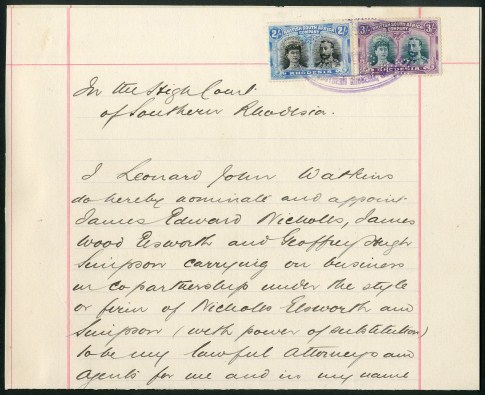 BRITISH SOUTH AFRICA
COMPANY
2/- 2/-
RHODESIA
BRITISH SOUTH AFRICA
COMPANY
3/- 3/-
In the High Court
of Southern Rhodesia.
I Leonard John Watkins
do hereby nominate and appoint
James Edward Nicholls, James
Wood Elsworth and Geoffrey Hugh
Simpson carrying on business
in copartnership under the style
or firm of Nicholls Elsworth and
Simpson (with power of substitution)
to be my lawful Attorneys and
Agents for me and in my name